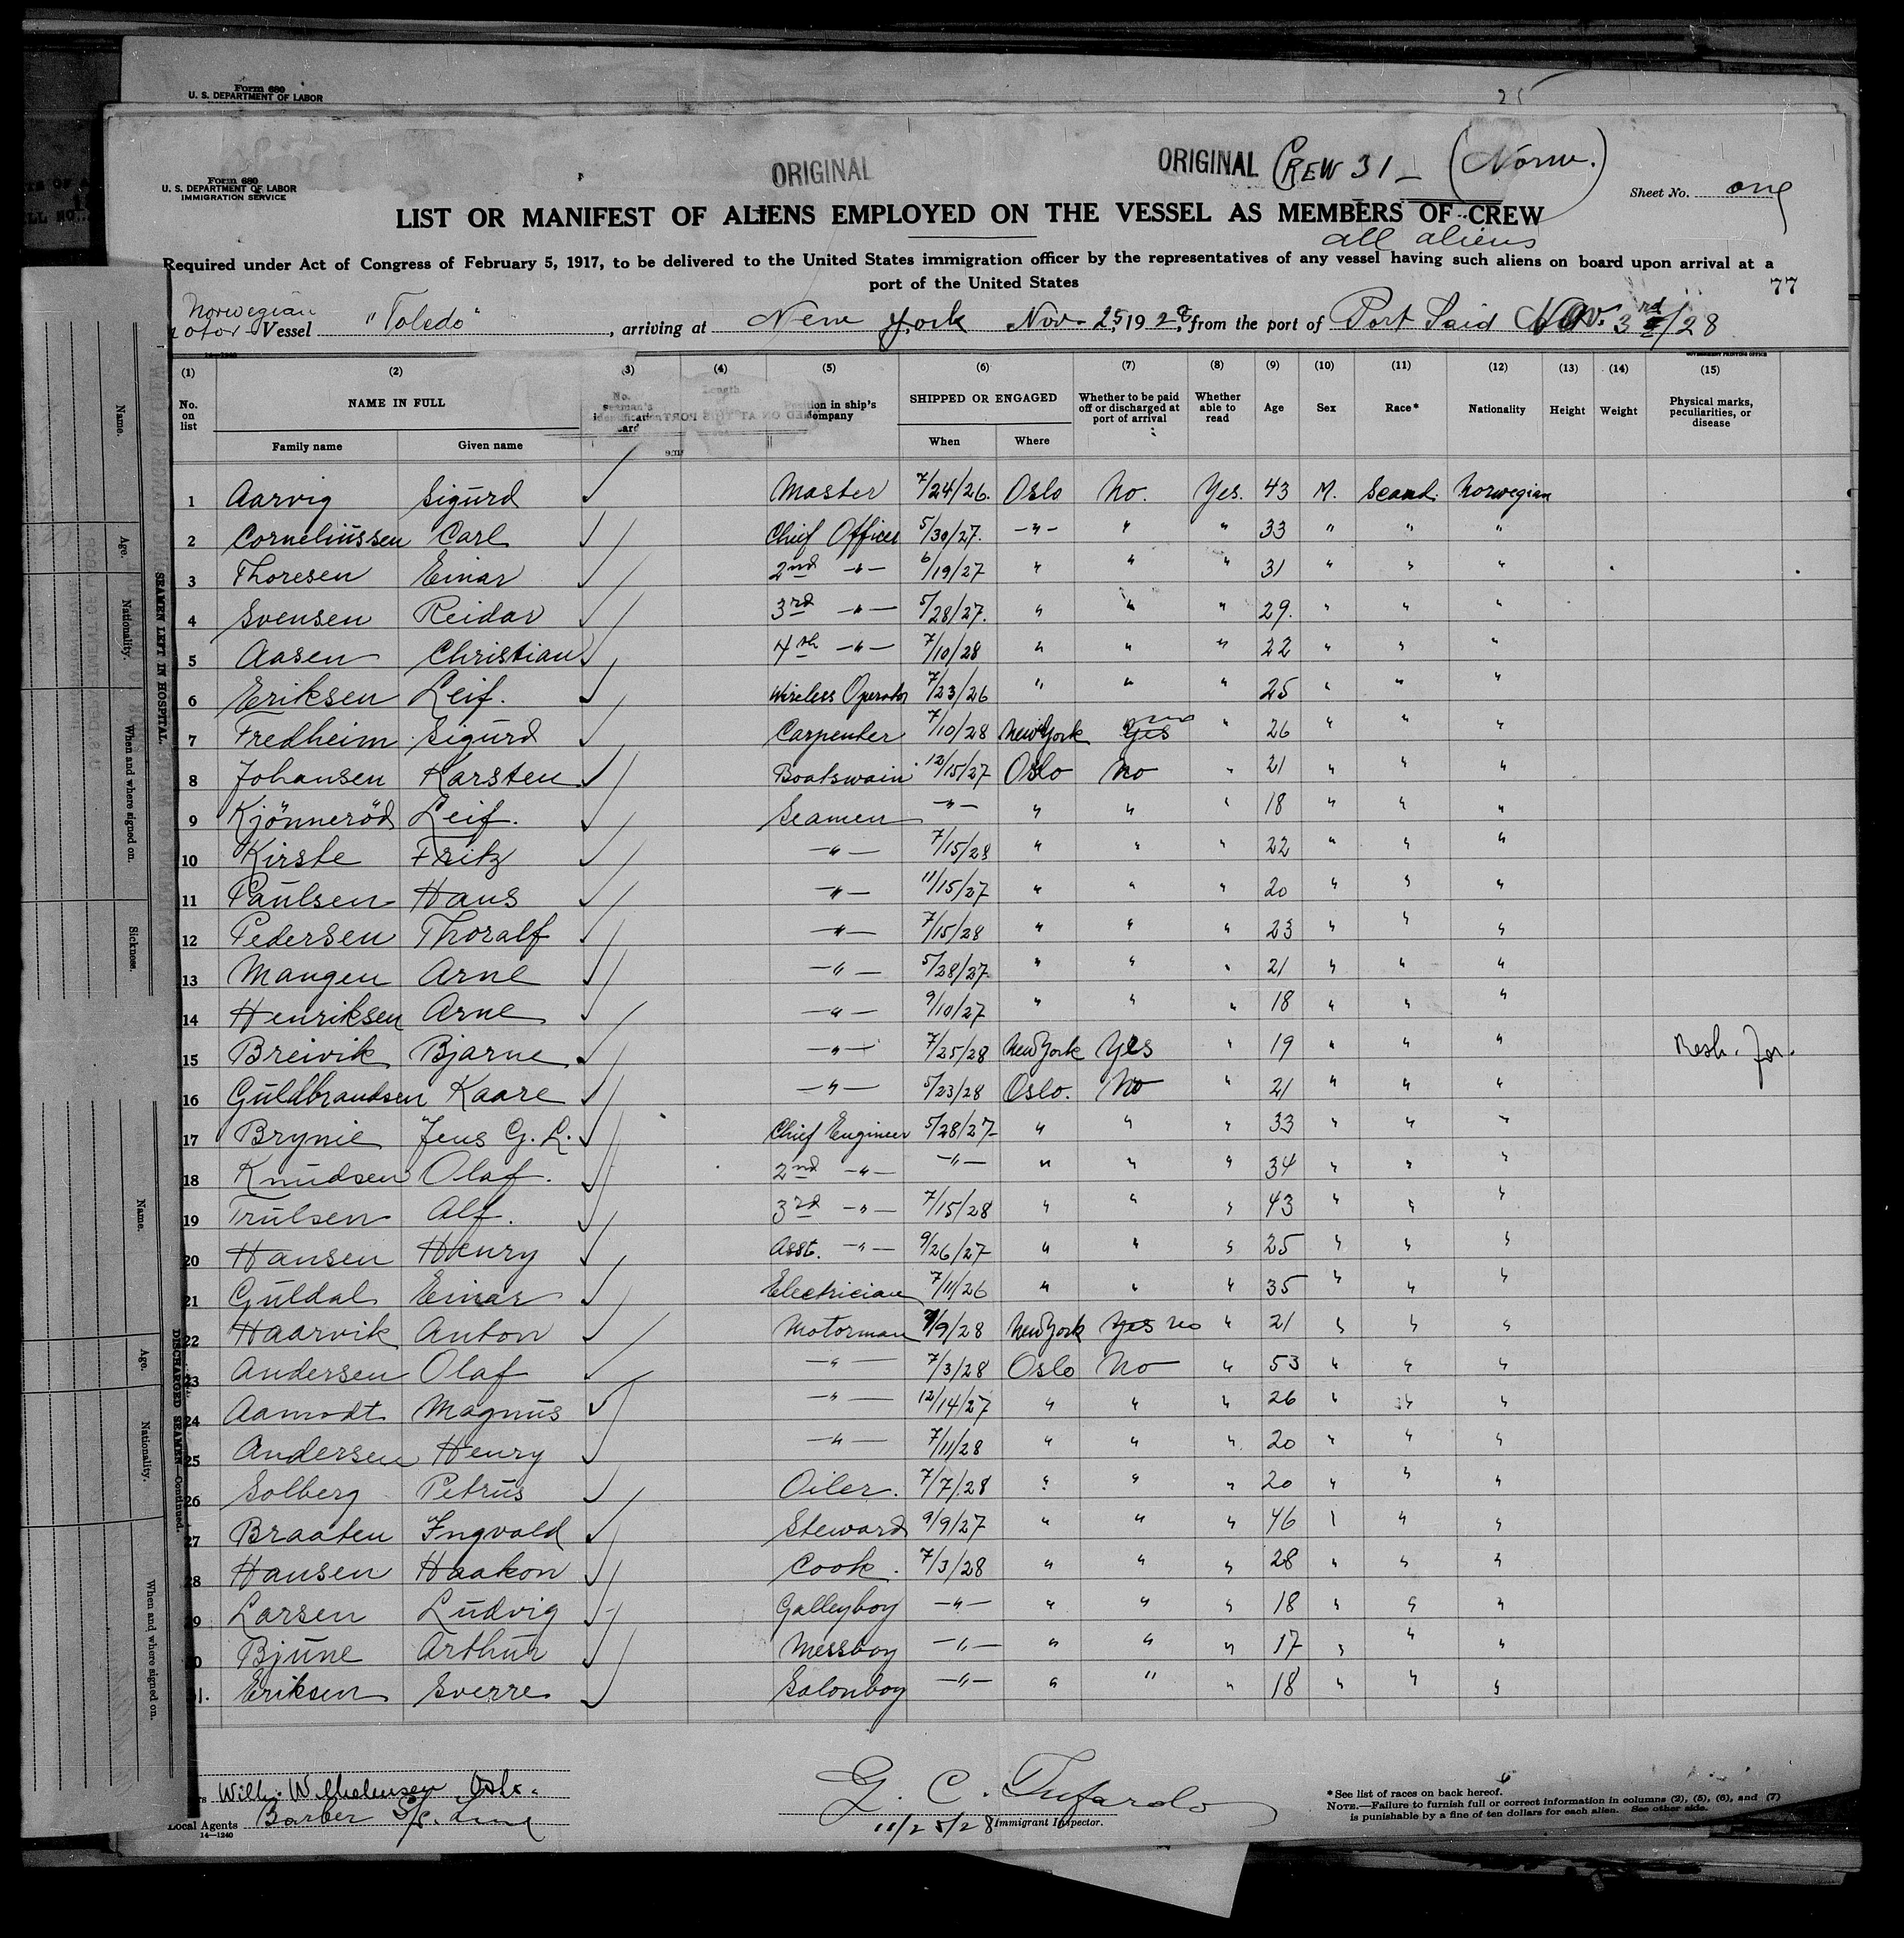 Form 680
U. S. DEPARTMENT OF LABOR
25
ORIGINAL
ORIGINAL CREW 31 – (Norw.)
Form 680
U. S. DEPARTMENT OF LABOR
IMMIGRATION SERVICE
Sheet No. one
LIST OR MANIFEST OF ALIENS EMPLOYED ON THE VESSEL AS MEMBERS OF CREW
all aliens
Required under Act of Congress of February 5, 1917, to be delivered to the United States immigration officer by the representatives of any vessel having such aliens on board upon arrival at a
port of the United States
77
Norwegian
Vessel "Toledo", arriving at New York Nov. 25, 1928, from the port of Port Said Nov. 3rd/28
14—1240
GOVERNMENT PRINTING OFFICE
(1) (2) (3) (4) (5) (6) (7) (8) (9) (10) (11) (12) (13) (14) (15)
No. on list NAME IN FULL Family name Given name No. seaman's identification card Length Position in ship's company SHIPPED OR ENGAGED When Where Whether to be paid off or discharged at port of arrival Whether able to read Age Sex Race* Nationality Height Weight Physical marks, peculiarities, or disease
1 Aarvig Sigurd ✓ Master 7/24/26. Oslo No. Yes. 43 M. Scand. Norwegian
2 Corneliussen Carl ✓ Chief Officer 5/30/27. –"– " " 33 " " "
3 Thoresen Einar ✓ 2nd –"– 6/19/27 " " " 31 " " "
4 Svensen Reidar ✓ 3rd –"– 5/28/27. " " " 29. " " "
5 Aasen Christian ✓ 4th –"– 7/10/28 " " " 22 " " "
6 Eriksen Leif. ✓ Wireless Operator 7/23/26 " " " 25 " " "
7 Fredheim Sigurd ✓ Carpenter 7/10/28 New York Yes no " 26 " " "
8 Johansen Karsten ✓ Boatswain 12/15/27 Oslo No " 21 " " "
9 Kjönneröd Leif. ✓ Seamen –"– " " " 18 " " "
10 Kirste Fritz ✓ –"– 7/15/28 " " " 22 " " "
11 Paulsen Hans ✓ –"– 11/15/27 " " " 20 " " "
12 Pedersen Thoralf ✓ –"– 7/15/28 " " " 23 " " "
13 Mangen Arne ✓ –"– 5/28/27 " " " 21 " " "
14 Henriksen Arne ✓ –"– 9/10/27 " " " 18 " " "
15 Breivik Bjarne ✓ –"– 7/25/28 New York Yes " 19 " " " Resh. for.
16 Guldbrandsen Kaare ✓ –"– 5/23/28 Oslo. No " 21 " " "
17 Brynie Jens G. L. ✓ Chief Engineer 5/28/27 " " " 33 " " "
18 Knudsen Olaf. ✓ 2nd –"– –"– " " " 34 " " "
19 Trulsen Alf. ✓ 3rd –"– 7/15/28 " " " 43 " " "
20 Hansen Henry ✓ Asst. –"– 9/26/27 " " " 25 " " "
21 Guldal Einar ✓ Electrician 7/11/26 " " " 35 " " "
22 Haarvik Anton ✓ Motorman 7/9/28 New York Yes no " 21 " " "
23 Andersen Olaf ✓ –"– 7/3/28 Oslo No " 53 " " "
24 Aamodt Magnus ✓ –"– 12/14/27 " " " 26 " " "
25 Andersen Henry ✓ –"– 7/11/28 " " " 20 " " "
26 Solberg Petrus ✓ Oiler. 7/7/28 " " " 20 " " "
27 Braaten Ingvald ✓ Steward 9/9/27 " " " 46 " " "
28 Hansen Haakon ✓ Cook. 7/3/28 " " " 28 " " "
29 Larsen Ludvig ✓ Galleyboy –"– " " " 18 " " "
0 Bjune Arthur ✓ Messboy –"– " " " 17 " " "
1. Eriksen Sverre ✓ Salonboy –"– " " " 18 " " "
Wilh. Wilhelmsen Oslo.
Local Agents Barber S/S. Line
14—1240
G. C. Tufarolo
11/25/28 Immigrant Inspector.
*See list of races on back hereof.
NOTE.—Failure to furnish full or correct information in columns (2), (5), (6), and (7)
is punishable by a fine of ten dollars for each alien. See other side.
SEAMEN LEFT IN HOSPITAL.
Name.
Age.
Nationality.
When and where signed on.
Sickness.
DISCHARGED SEAMEN—Continued.
Name.
Age.
Nationality.
When and where signed on.